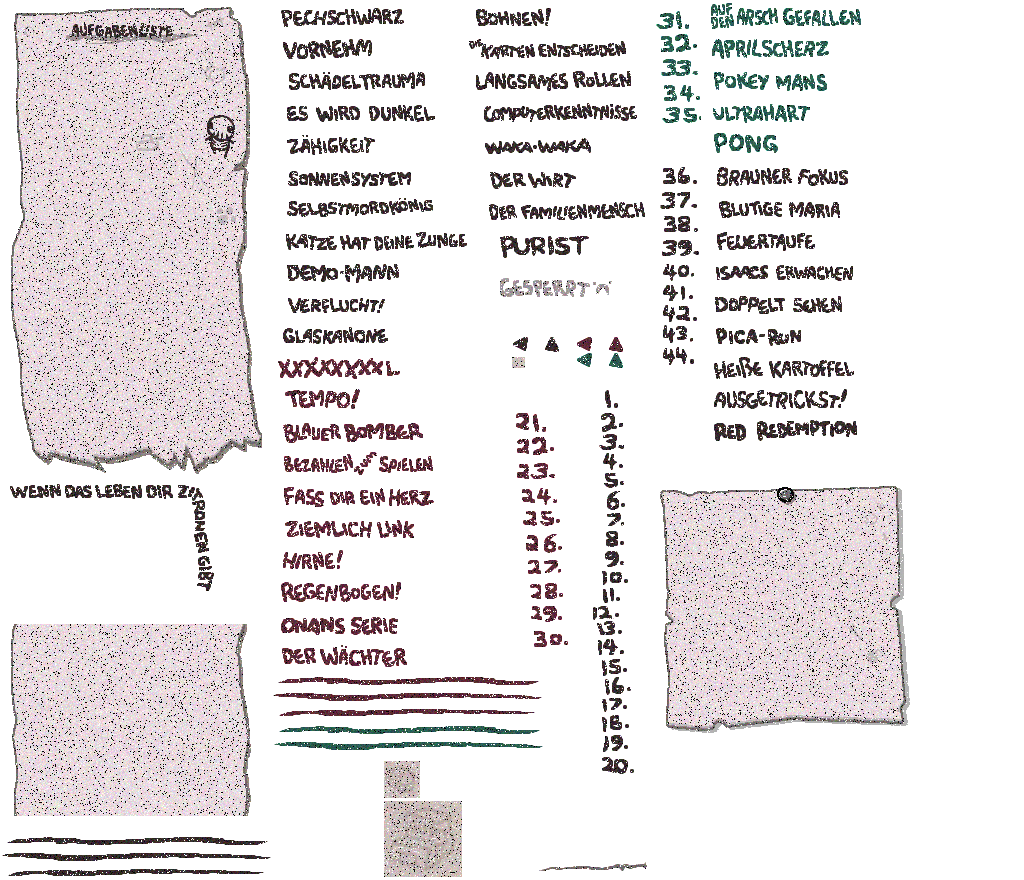 AUFGABENLISTE
PECHSCHWARZ
VORNEHM
SCHÄDELTRAUMA
ES WIRD DUNKEL
ZÄHIGKEIT
SONNENSYSTEM
SELBSTMORDKÖNIG
KATZE HAT DEINE ZUNGE
DEMO-MANN
VERFLUCHT!
GLASKANONE
XXXXXXXXL
TEMPO!
BLAUER BOMBER
BEZAHLEN ZUM SPIELEN
FASS DIR EIN HERZ
ZIEMLICH LINK
HIRNE!
REGENBOGEN!
ONANS SERIE
DER WÄCHTER
BOHNEN!
DIE KARTEN ENTSCHEIDEN
LANGSAMES ROLLEN
COMPUTERKENNTNISSE
WAKA-WAKA
DER WIRT
DER FAMILIENMENSCH
PURIST
GESPERRT
21.
22.
23.
24.
25.
26.
27.
28.
29.
30.
1.
2.
3.
4.
5.
6.
7.
8.
9.
10.
11.
12.
13.
14.
15.
16.
17.
18.
19.
20.
31.
32.
33.
34.
35.
36.
37.
38.
39.
40.
41.
42.
43.
44.
AUF DEN ARSCH GEFALLEN
APRILSCHERZ
POKEY MANS
ULTRAHART
PONG
BRAUNER FOKUS
BLUTIGE MARIA
FEUERTAUFE
ISAACS ERWACHEN
DOPPELT SEHEN
PICA-RUN
HEIßE KARTOFFEL
AUSGETRICKST!
RED REDEMPTION
WENN DAS LEBEN DIR ZITRONEN GIBT